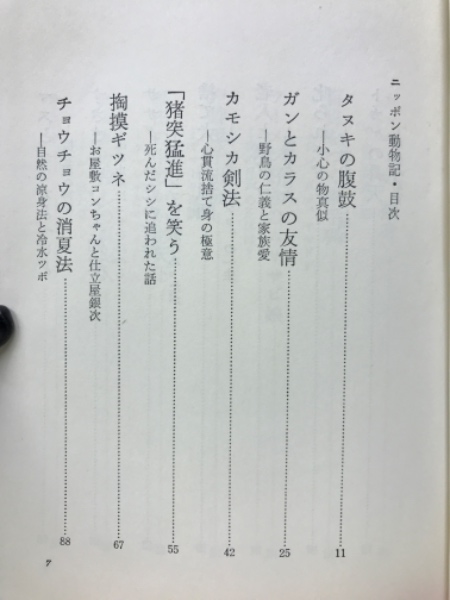 ニッポン動物記・目次
タヌキの腹鼓……………11
―小心の物真似
ガンとカラスの友情……………25
―野鳥の仁義と家族愛
カモシカ剣法……………42
―心貫流捨て身の極意
「猪突猛進」を笑う……………55
―死んだシシに追われた話
掏摸ギツネ……………67
―お屋敷コンちゃんと仕立屋銀次
チョウチョウの消夏法……………88
―自然の涼身法と冷水ツボ
7